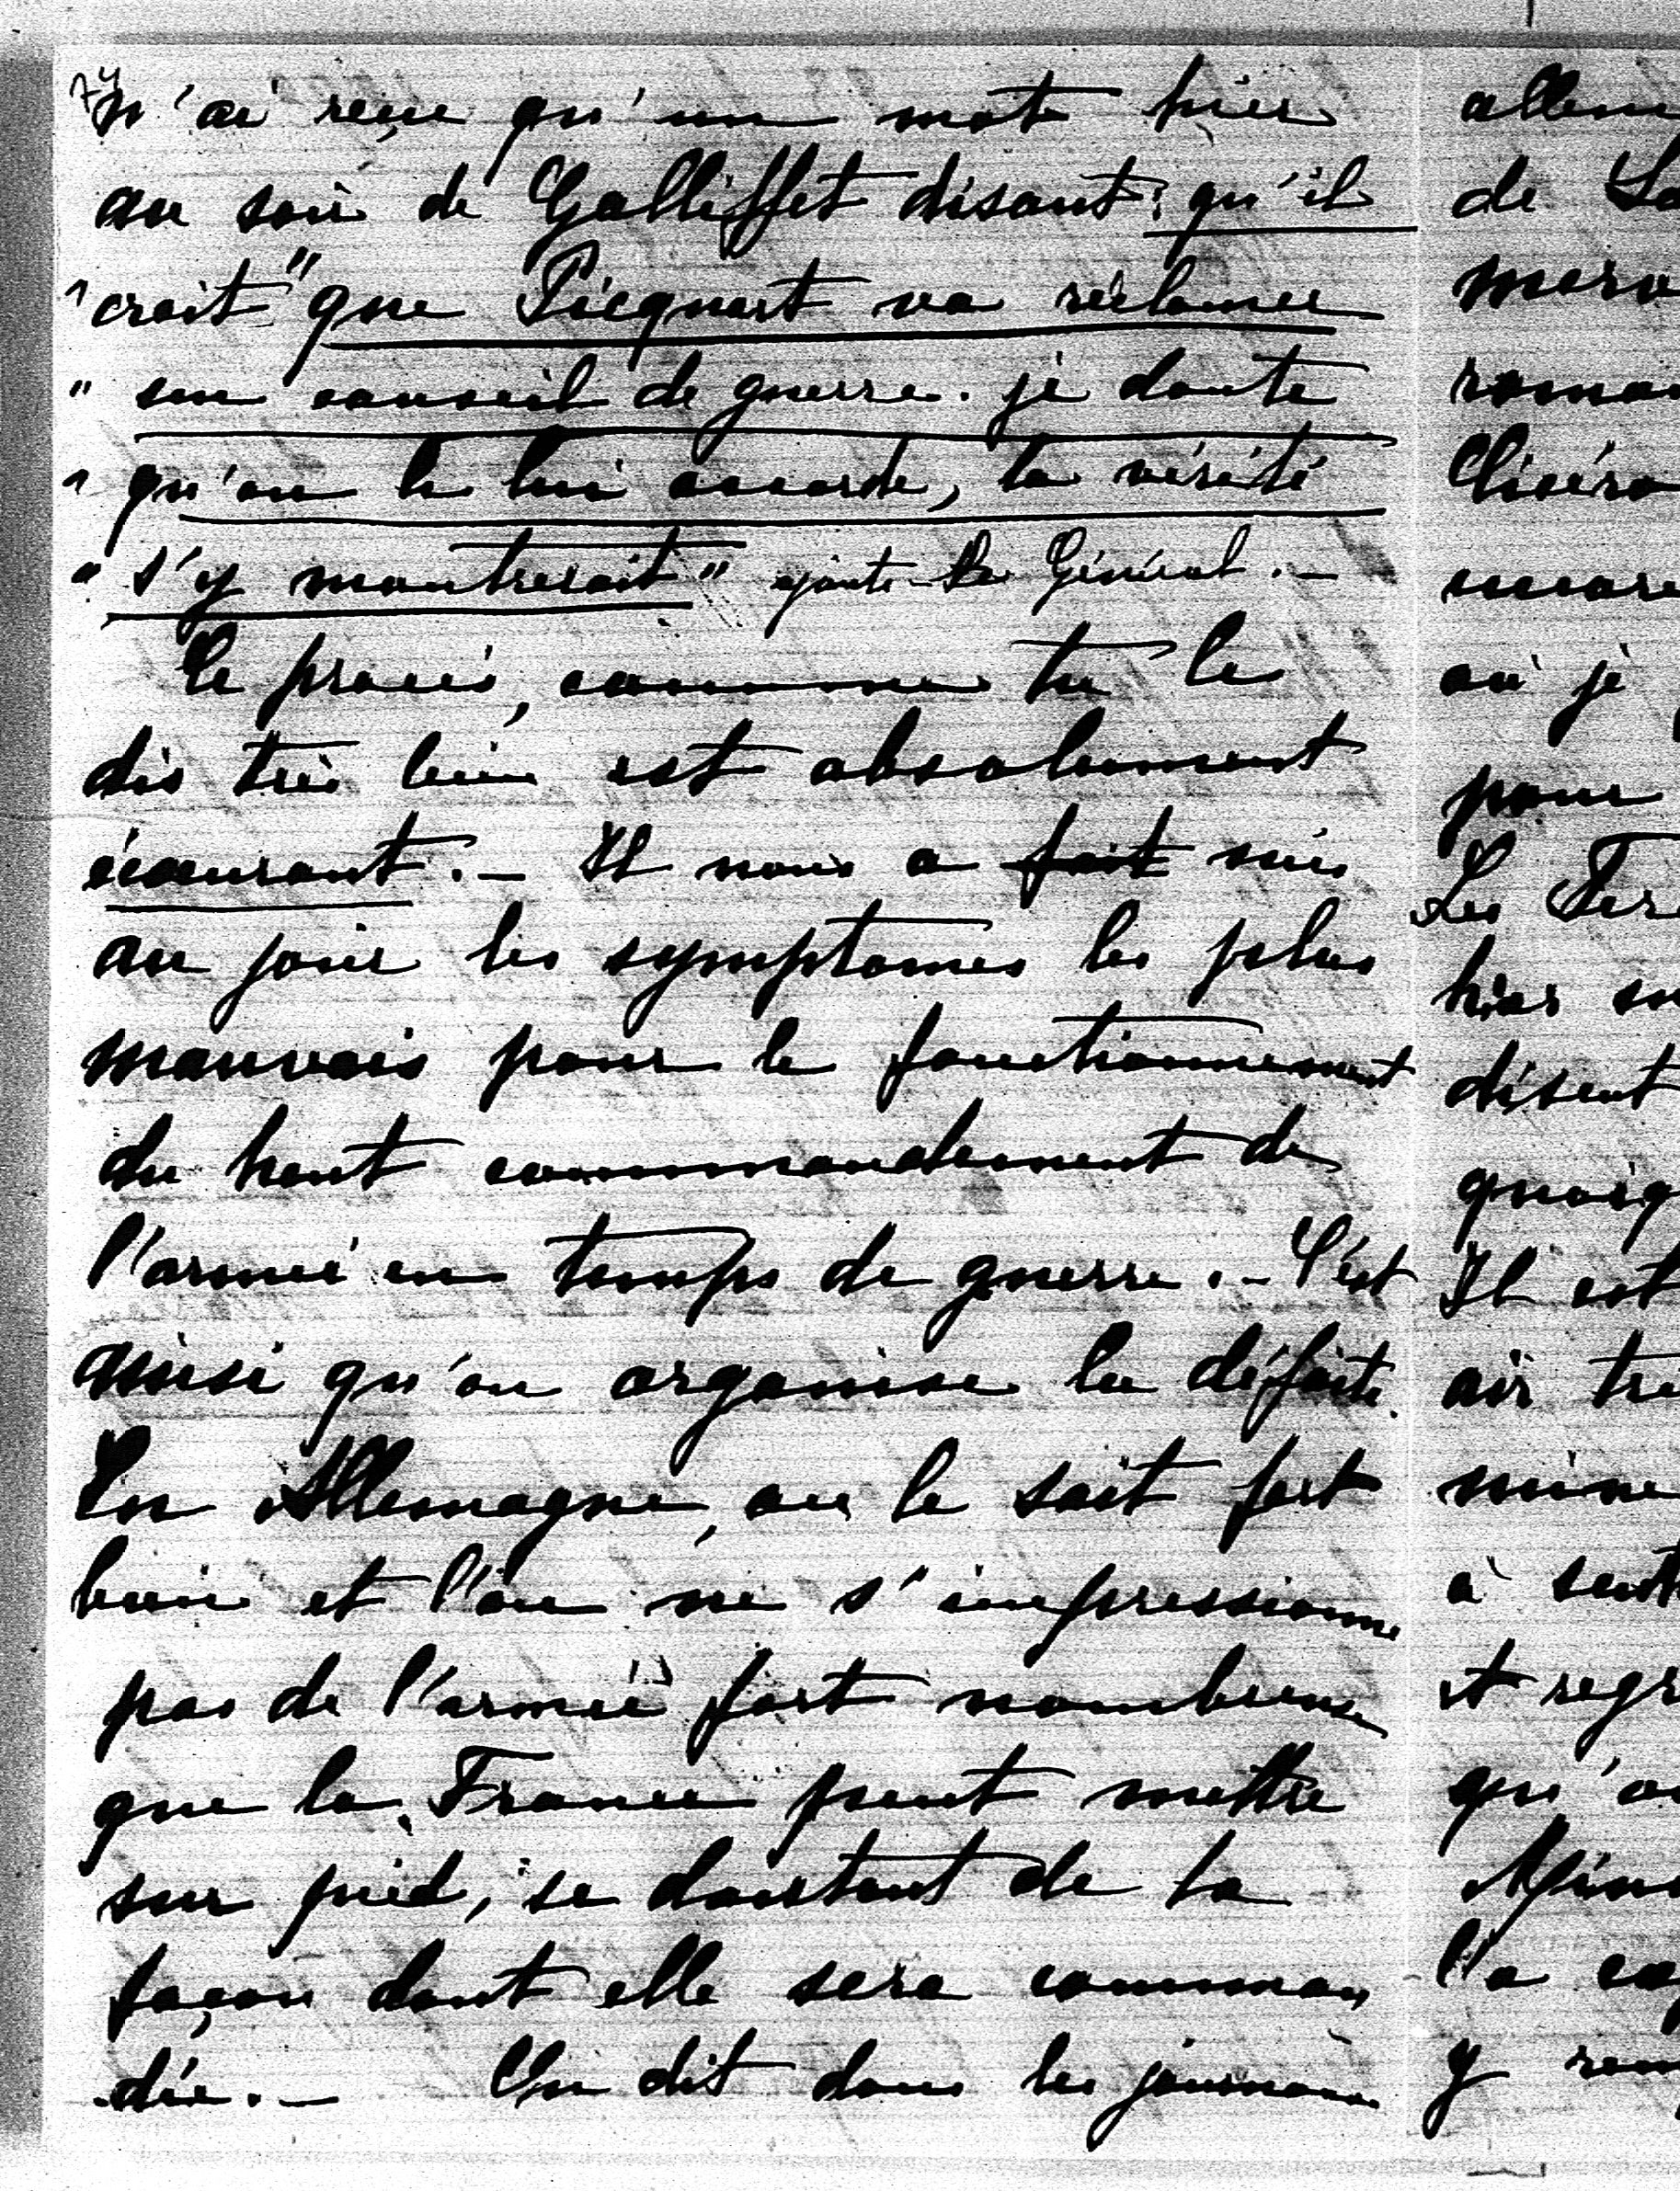 74
n'ai reçu qu'un mot hier
au soir de Galliffet disant: qu'il
"croit" que Picquart va réclamer
" un conseil de guerre. je doute
" qu'on le lui accorde, la vérité
" s'y montrerait" ajoute le Général. –
Le procès, comme tu le
dis très bien est absolument
écœurant. – Il nous a fait mis
au jour les symptomes les plus
mauvais pour le fonctionnement
du haut commandement de
l'armée en temps de guerre. – C'est
ainsi qu'on organise la défaite.
En Allemagne, on le sait fort
bien et l'on ne s'impressionne
pas de l'armée fort nombreuse
que la France peut mettre
sur pied, se doutant de la
façon dont elle sera comman
dée. – On dit dans les journaux
allem
de La
merv
roma
Cicéro
encore
où je
pour
Les Fer
hier so
disent
quoiq
Il est
air tr
mine
à sent
et regr
qu'o
Mini
l'a ca
y rem